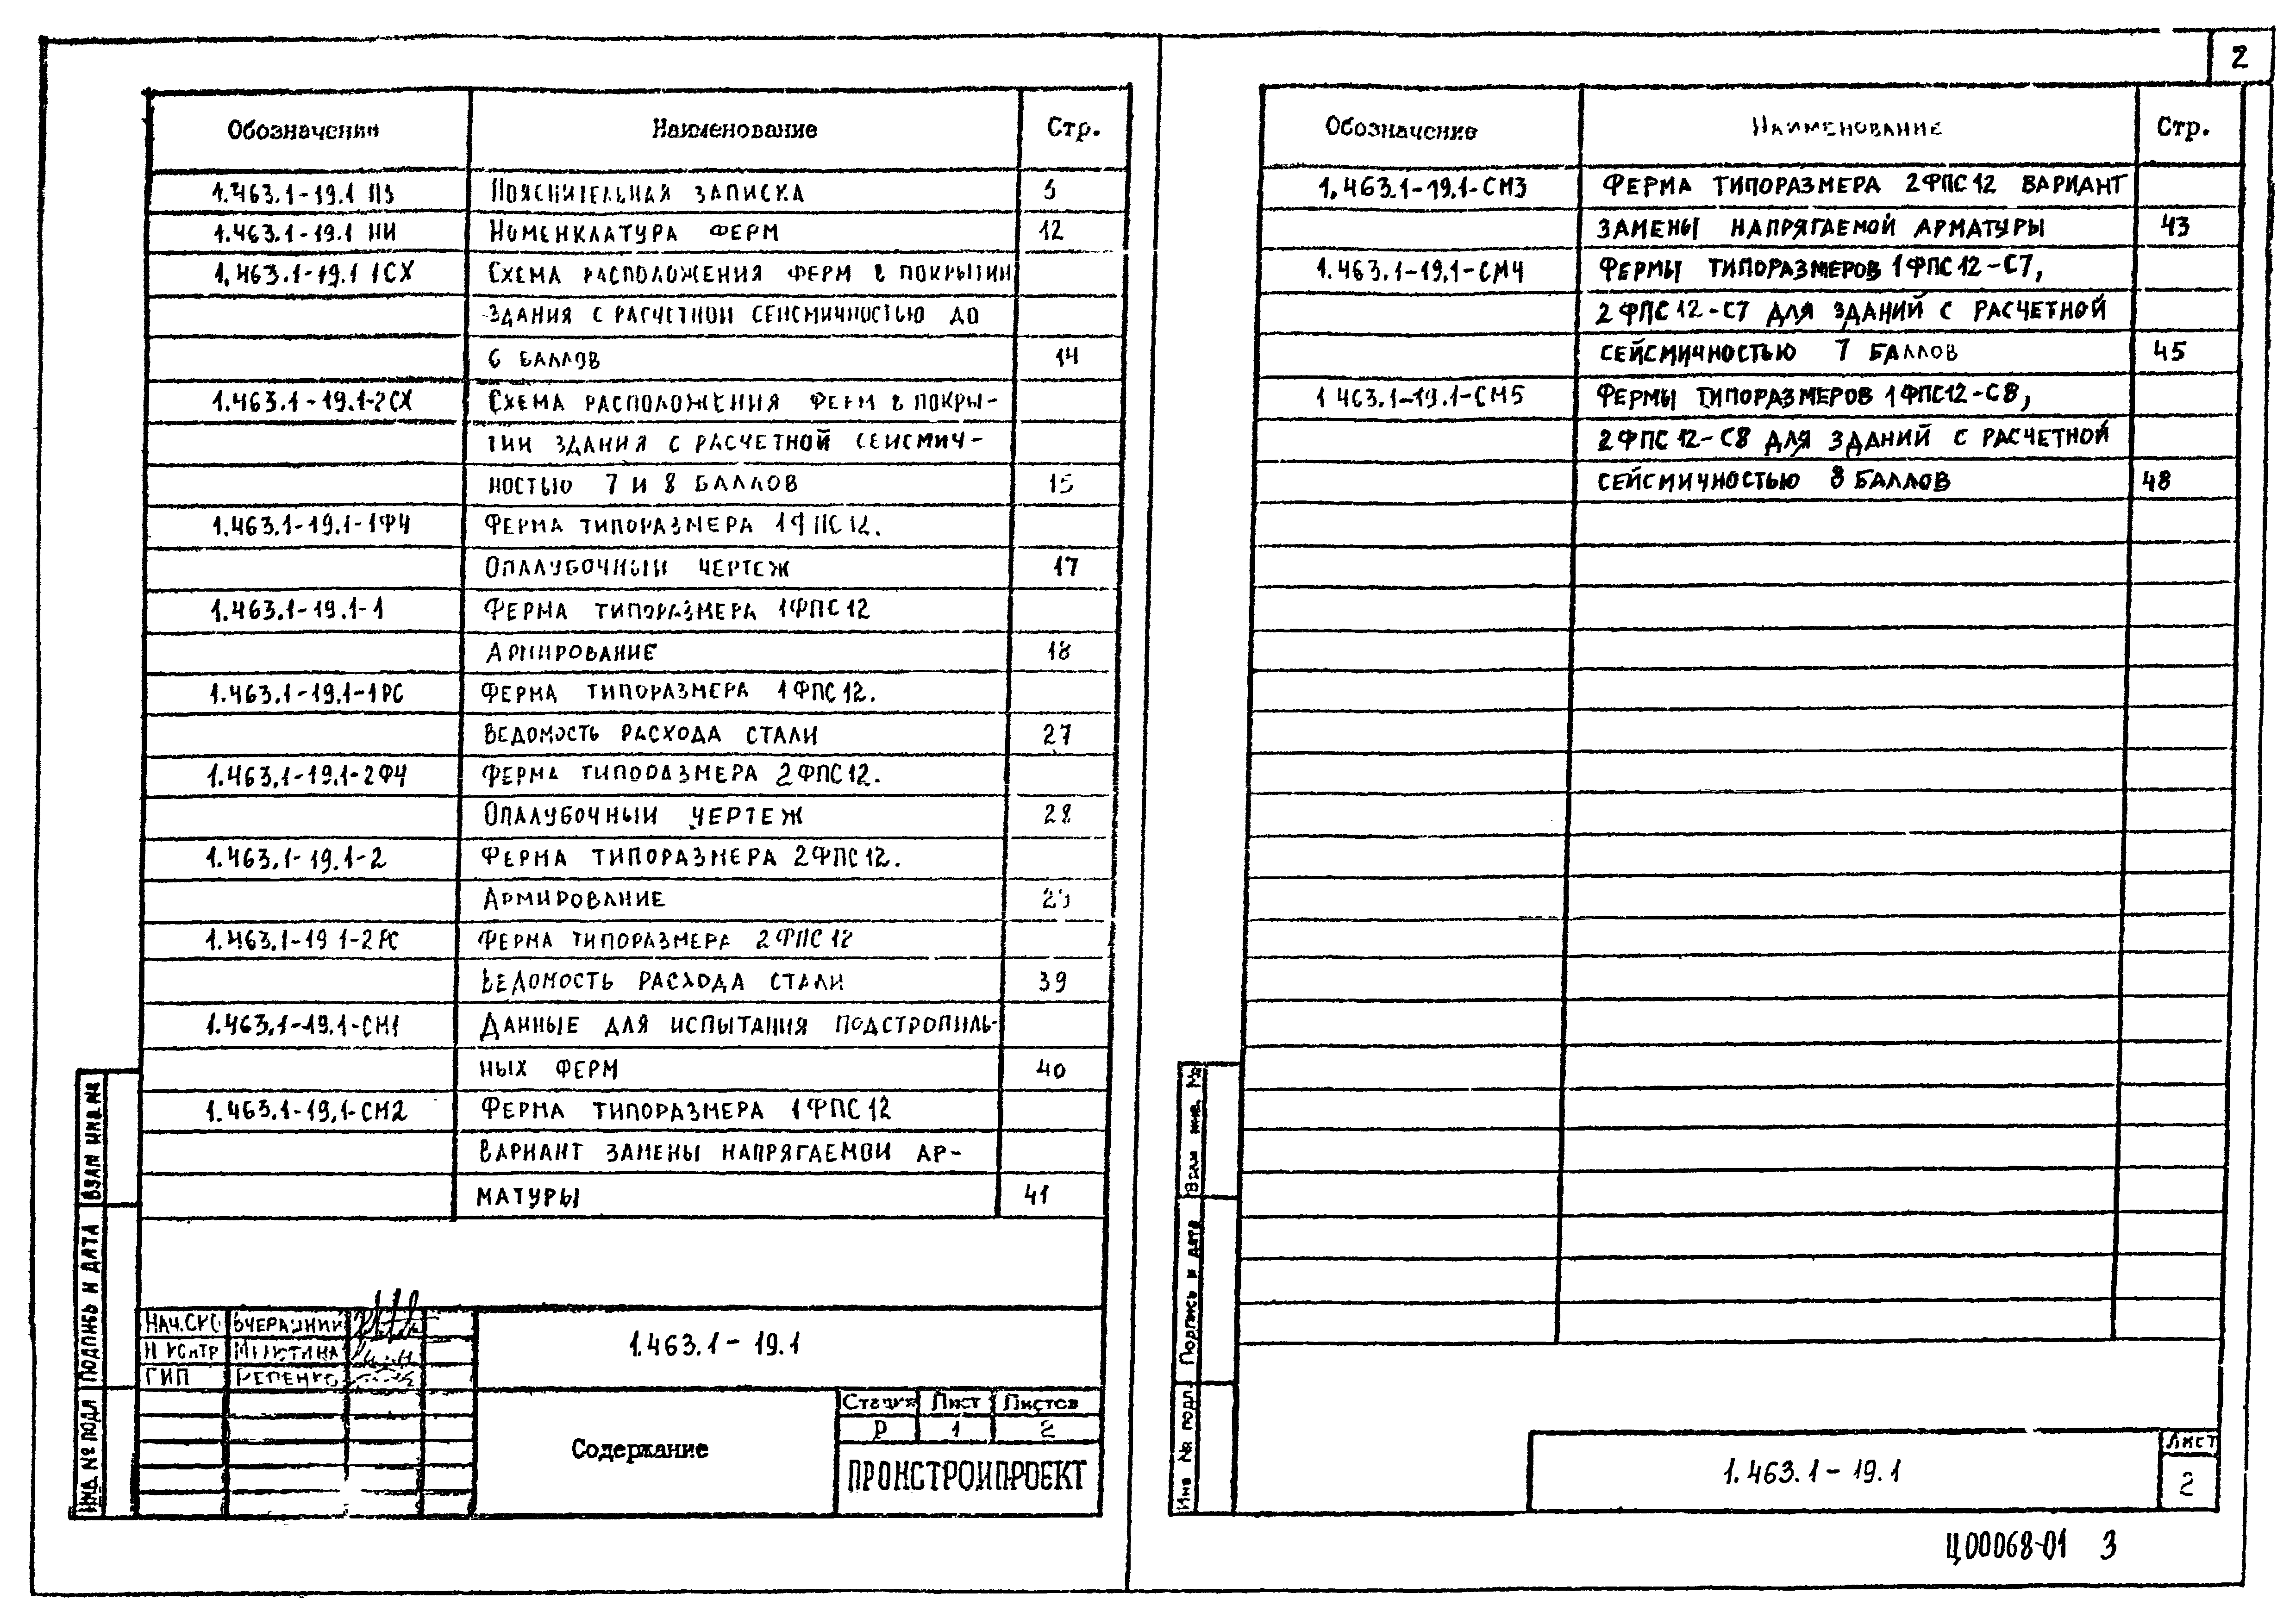 2
Обозначении Наименование Стр.
1.463.1-19.1 ПЗ Пояснительная записка 3
1.463.1-19.1 НИ Номенклатура ферм 12
1.463.1-19.1 1СХ Схема расположения ферм в покрытии
здания с расчетной сейсмичностью до
6 баллов 14
1.463.1-19.1-2СХ Схема расположения ферм в покры-
тии здания с расчетной сейсмич-
ностью 7 и 8 баллов 15
1.463.1-19.1-1ФЧ Ферма типоразмера 1ФПС12.
Опалубочный чертеж 17
1.463.1-19.1-1 Ферма типоразмера 1ФПС12
Армирование 18
1.463.1-19.1-1РС Ферма типоразмера 1ФПС12.
Ведомость расхода стали 27
1.463.1-19.1-2ФЧ Ферма типоразмера 2ФПС12.
Опалубочный чертеж 28
1.463.1-19.1-2 Ферма типоразмера 2ФПС12.
Армирование 29
1.463.1-19 1-2РС Ферма типоразмера 2ФПС12
Ведомость расхода стали 39
1.463.1-19.1-СМ1 Данные для испытания подстропиль-
ных ферм 40
1.463.1-19.1-СМ2 Ферма типоразмера 1ФПС12
Вариант замены напрягаемой ар-
матуры 41
Взам инв №
Подпись и дата
Инв № подл
Нач.СКО Вчерашний
Н контр
ГИП
1.463.1-19.1
Содержание
Стадия Лист Листов
Р 1 2
ПРОМСТРОЙПРОЕКТ
Обозначение Наименование Стр.
1.463.1-19.1-СМ3 Ферма типоразмера 2ФПС12 вариант
замены напрягаемой арматуры 43
1.463.1-19.1-СМ4 Фермы типоразмеров 1ФПС12-С7,
2ФПС12-С7 для зданий с расчетной
сейсмичностью 7 баллов 45
1 463.1-19.1-СМ5 Фермы типоразмеров 1ФПС12-С8,
2ФПС12-С8 для зданий с расчетной
сейсмичностью 8 баллов 48
Взам инв. №
Подпись и дата
Инв № подл.
1.463.1-19.1
Лист
2
Ц00068-01 3